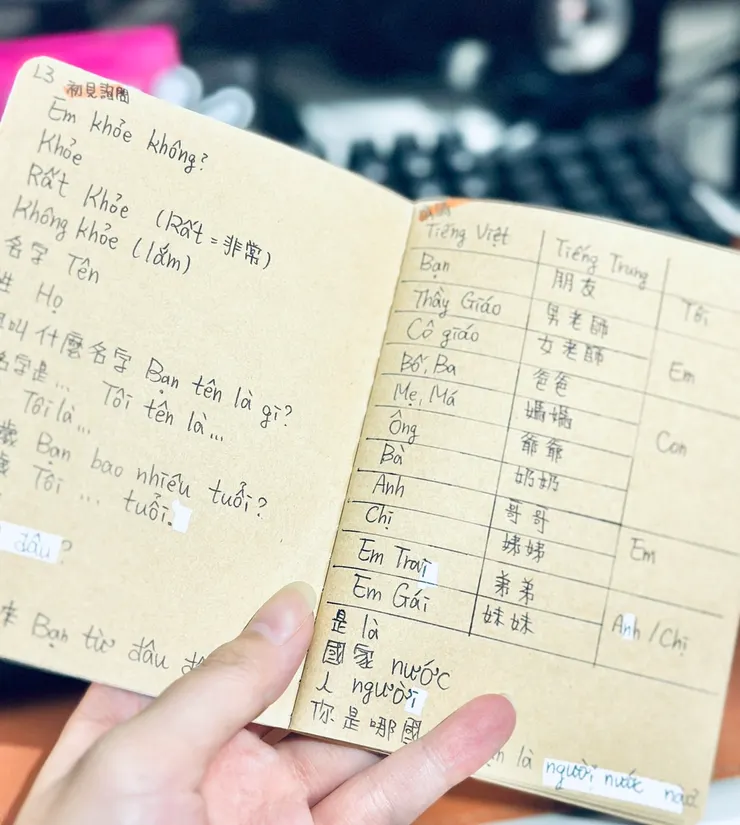 L3 初見詢問
Em khỏe không?
Khỏe
Rất Khỏe (Rất = 非常)
Không khỏe (lắm)
名字 Tên
Họ
叫什麼名字 Bạn tên là gì?
名字是... Tôi tên là...
Tôi là...
歲 Bạn bao nhiếu tuổi?
歲 Tôi ... tuổi.
đâu?
Bạn từ đâu
Tiếng Việt Tiếng Trung
Bạn 朋友 Tôi
Thầy Giáo 男老師
Cô giáo 女老師 Em
Bố, Ba 爸爸
Mẹ, Má 媽媽
Ông 爺爺 Con
Bà 奶奶
Anh 哥哥
Chị 姊姊 Em
Em Trai 弟弟
Em Gái 妹妹 Anh / Chị
是 là
國家 nước
人 người
你是哪國 là người nước nào?